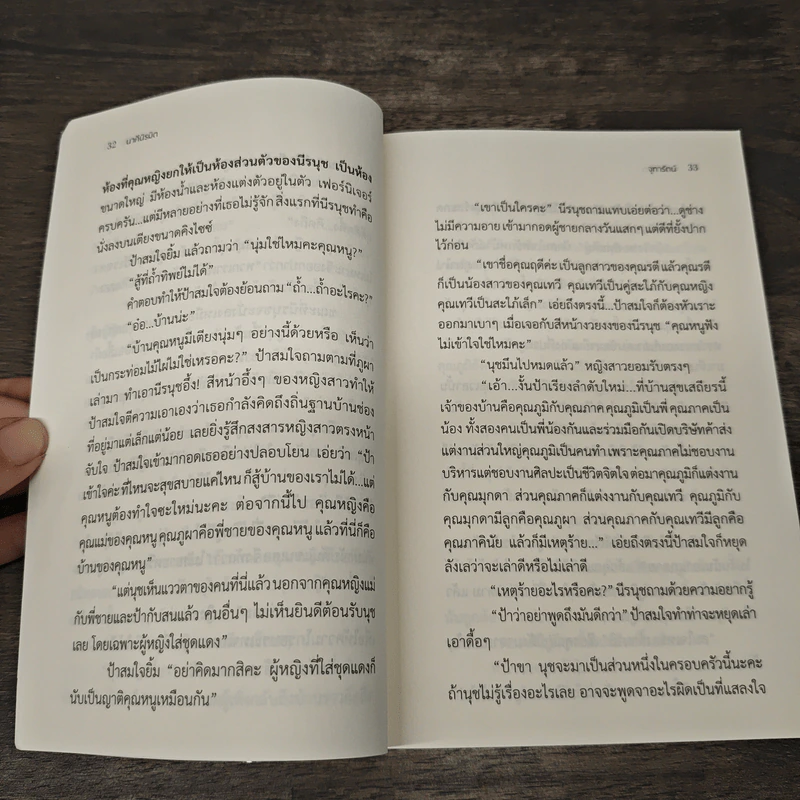 32 นาคีนิรมิต
ห้องที่คุณหญิงยกให้เป็นห้องส่วนตัวของนีรนุช เป็นห้อง
ขนาดใหญ่ มีห้องน้ำและห้องแต่งตัวอยู่ในตัว เฟอร์นิเจอร์
ครบครัน...แต่มีหลายอย่างที่เธอไม่รู้จัก สิ่งแรกที่นีรนุชทำคือ
นั่งลงบนเตียงขนาดคิงไซซ์
ป้าสมใจยิ้ม แล้วถามว่า “นุ่มใช่ไหมคะคุณหนู?”
“สู้ที่ถ้ำทิพย์ไม่ได้”
คำตอบทำให้ป้าสมใจต้องย้อนถาม “ถ้ำ...ถ้ำอะไรคะ?”
“อ๋อ...บ้านน่ะ”
“บ้านคุณหนูมีเตียงนุ่มๆ อย่างนี้ด้วยหรือ เห็นว่า
เป็นกระท่อมไม้ไผ่ไม่ใช่เหรอคะ?” ป้าสมใจถามตามที่ภูผา
เล่ามา ทำเอานีรนุชอึ้ง! สีหน้าอึ้งๆ ของหญิงสาวทำให้
ป้าสมใจตีความเอาเองว่าเธอกำลังคิดถึงถิ่นฐานบ้านช่อง
ที่อยู่มาแต่เล็กแต่น้อย เลยยิ่งรู้สึกสงสารหญิงสาวตรงหน้า
จับใจ ป้าสมใจเข้ามากอดเธออย่างปลอบโยน เอ่ยว่า “ป้า
เข้าใจค่ะ ที่ไหนจะสุขสบายแค่ไหน ก็สู้บ้านของเราไม่ได้...แต่
คุณหนูต้องทำใจซะใหม่นะคะ ต่อจากนี้ไป คุณหญิงคือ
คุณแม่ของคุณหนู คุณภูผาคือพี่ชายของคุณหนู แล้วที่นี่ก็คือ
บ้านของคุณหนู”
“แต่นุชเห็นแววตาของคนที่นี่แล้ว นอกจากคุณหญิงแม่
กับพี่ชายและป้ากับสนแล้ว คนอื่นๆ ไม่เห็นยินดีต้อนรับนุช
เลย โดยเฉพาะผู้หญิงใส่ชุดแดง”
ป้าสมใจยิ้ม “อย่าคิดมากสิคะ ผู้หญิงที่ใส่ชุดแดงก็
นับเป็นญาติคุณหนูเหมือนกัน”
จุฑารัตน์ 33
“เขาเป็นใครคะ” นีรนุชถามแทบเอ่ยต่อว่า...ดูช่าง
ไม่มีความอาย เข้ามากอดผู้ชายกลางวันแสกๆ แต่ดีที่ยั้งปาก
ไว้ก่อน
“เขาชื่อคุณฤดีค่ะ เป็นลูกสาวของคุณรตี แล้วคุณรตี
ก็เป็นน้องสาวของคุณเทวี คุณเทวีเป็นคู่สะใภ้กับคุณหญิง
คุณเทวีเป็นสะใภ้เล็ก” เอ่ยถึงตรงนี้...ป้าสมใจก็ต้องหัวเราะ
ออกมาเบาๆ เมื่อเจอกับสีหน้างวยงงของนีรนุช “คุณหนูฟัง
ไม่เข้าใจใช่ไหมคะ”
“นุชมึนไปหมดแล้ว” หญิงสาวยอมรับตรงๆ
“เอ้า...งั้นป้าเรียงลำดับใหม่...ที่บ้านสุขเสถียรนี้
เจ้าของบ้านคือคุณภูมิกับคุณภาค คุณภูมิเป็นพี่ คุณภาคเป็น
น้อง ทั้งสองคนเป็นพี่น้องกันและร่วมมือกันเปิดบริษัทค้าส่ง
แต่งานส่วนใหญ่คุณภูมิเป็นคนทำ เพราะคุณภาคไม่ชอบงาน
บริหารแต่ชอบงานศิลปะเป็นชีวิตจิตใจ ต่อมาคุณภูมิก็แต่งงาน
กับคุณมุกดา ส่วนคุณภาคก็แต่งงานกับคุณเทวี คุณภูมิกับ
คุณมุกดามีลูกคือคุณภูผา ส่วนคุณภาคกับคุณเทวีมีลูกคือ
คุณภาคินัย แล้วก็มีเหตุร้าย...” เอ่ยถึงตรงนี้ป้าสมใจก็หยุด
ลังเลว่าจะเล่าดีหรือไม่เล่าดี
“เหตุร้ายอะไรหรือคะ?” นีรนุชถามด้วยความอยากรู้
“ป้าว่าอย่าพูดถึงมันดีกว่า” ป้าสมใจทำท่าจะหยุดเล่า
เอาดื้อๆ
“ป้าขา นุชจะมาเป็นส่วนหนึ่งในครอบครัวนี้นะคะ
ถ้านุชไม่รู้เรื่องอะไรเลย อาจจะพูดจาอะไรผิดเป็นที่แสลงใจ